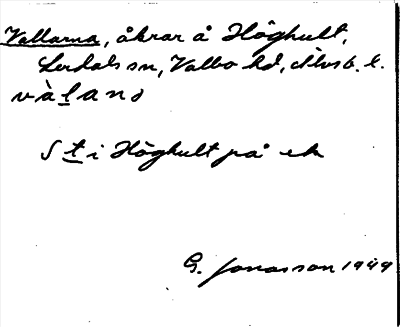 Vallarna, åkrar å Höghult,
Lerdals sn, Valbo hd, Älvsb. l.
và l a n ɔ
S t i Höghult på ek
G. Jonasson 1949